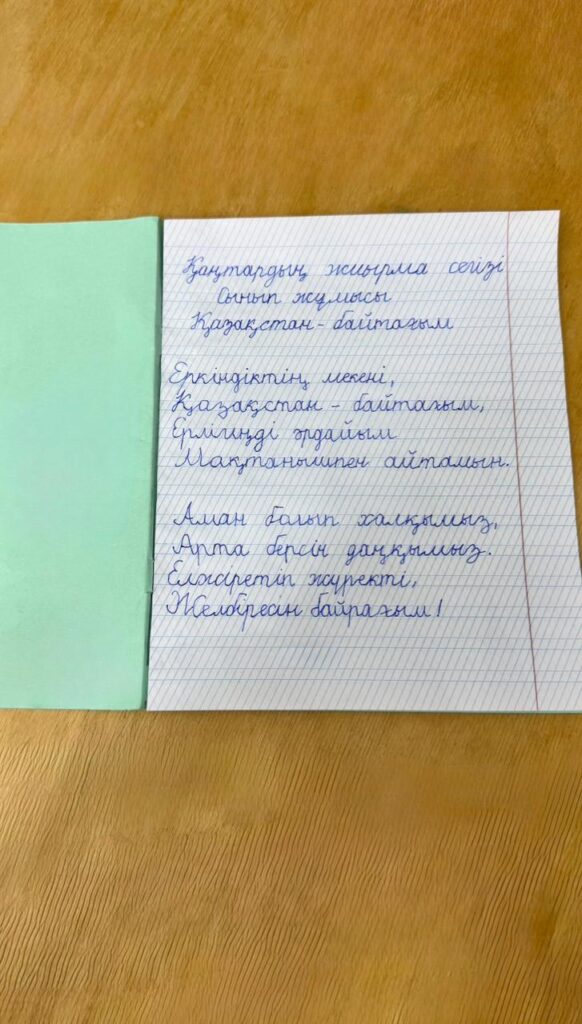 Қаңтардың жиырма сегізі
Сынып жұмысы
Қазақстан - байтағым
Еркіндіктің мекені,
Қазақстан - байтағым,
Ерлігіңді әрдайым
Мақтанышпен айтамын.
Аман болып халқымыз,
Арта берсін даңқымыз.
Елжіретіп жүректі,
Желбіресін байрағым!